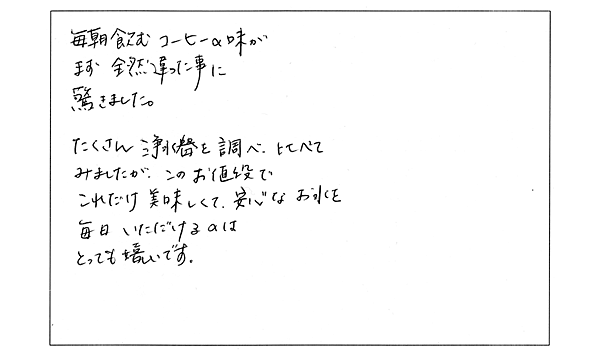 毎朝飲む コーヒーの味が
まず 全然違った事に
驚きました。
たくさん 浄水器を調べ、比べて
みましたが、このお値段で
これだけ 美味しくて、安心な お水を
毎日 いただけるのは
とっても嬉しいです。